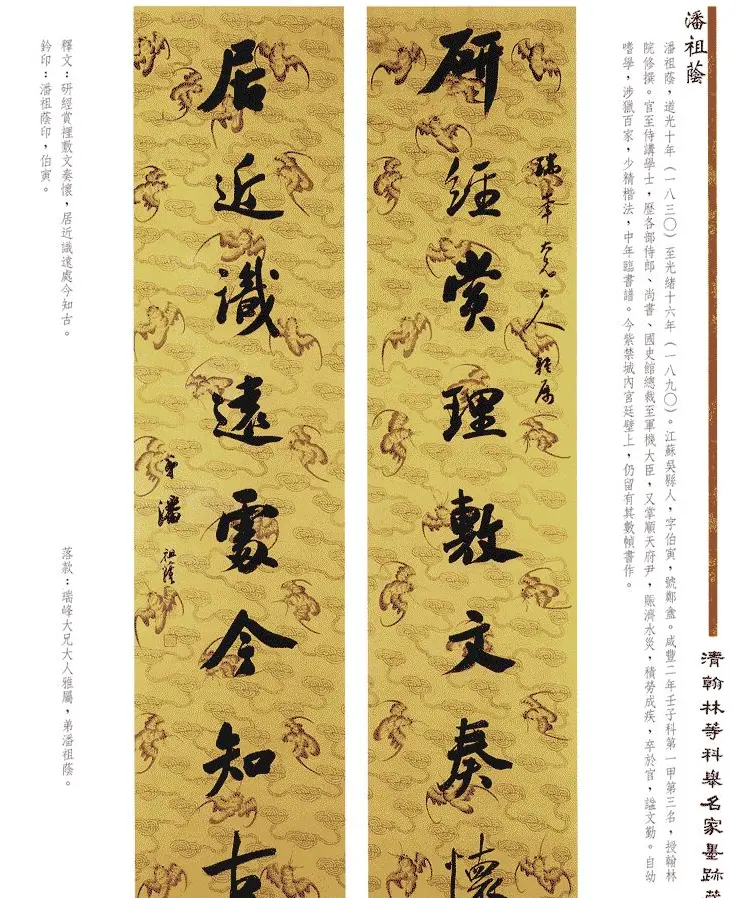 清翰林等科舉名家墨跡
潘祖蔭
潘祖蔭，道光十年（一八三〇）至光緒十六年（一八九〇）。江蘇吳縣人，字伯寅，號鄭盦。咸豐二年壬子科第一甲第三名，授翰林
院修撰。官至侍講學士，歷各部侍郎、尚書、國史館總裁至軍機大臣，又掌順天府尹，賑濟水災，積勞成疾，卒於官，謚文勤。自幼
嗜學，涉獵百家，少精楷法，中年臨書譜。今紫禁城內宮廷壁上，仍留有其數幀書作。
瑞峯大兄大人雅属
研經賞理敷文奏懷
居近識遠處今知古
弟潘祖蔭
釋文：研經賞裡敷文奏懷，居近識遠處今知古。
落款：瑞峰大兄大人雅屬，弟潘祖蔭。
鈐印：潘祖蔭印，伯寅。